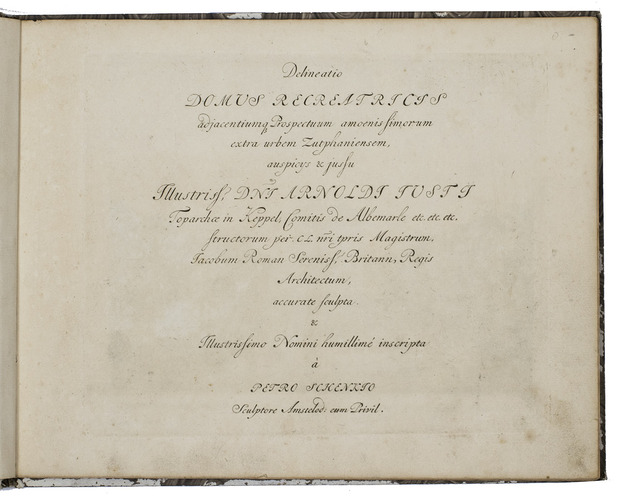 Delineatio
DOMUS RECREATRICIS
adjacentiumq Prospectuum amoenissimorum
extra urbem Zutphaniensem,
auspicijs & jussu
Illustriss. DNI ARNOLDI IUSTI
Toparchæ in Keppel, Comitis de Albemarle etc. etc. etc.
structorum per. CL. nri tpris Magistrum,
Iacobum Roman Sereniss. Britann. Regis
Architectum,
accurate sculpta.
&
Illustrissimo Nomini humillimè inscripta
à
PETRO SCHENKIO
Sculptore Amstelod: cum Privil.